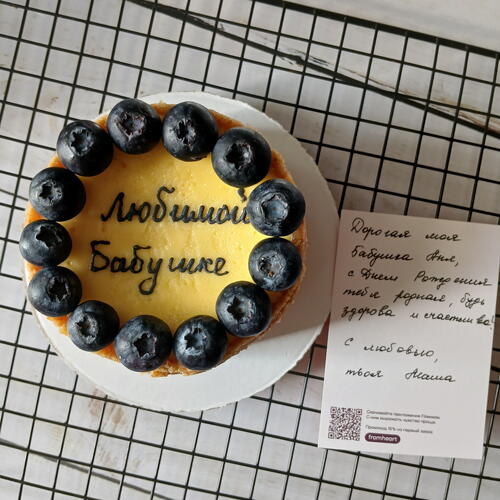 Любимой
Бабушке
Дорогая моя
бабушка Аня,
с Днем Рождения
тебя родная, будь
здорова и счастлива!
С любовью,
твоя Маша
Скачивайте приложение Flowwow.
С ним выражать чувства проще.
Промокод 10% на первый заказ
fromheart